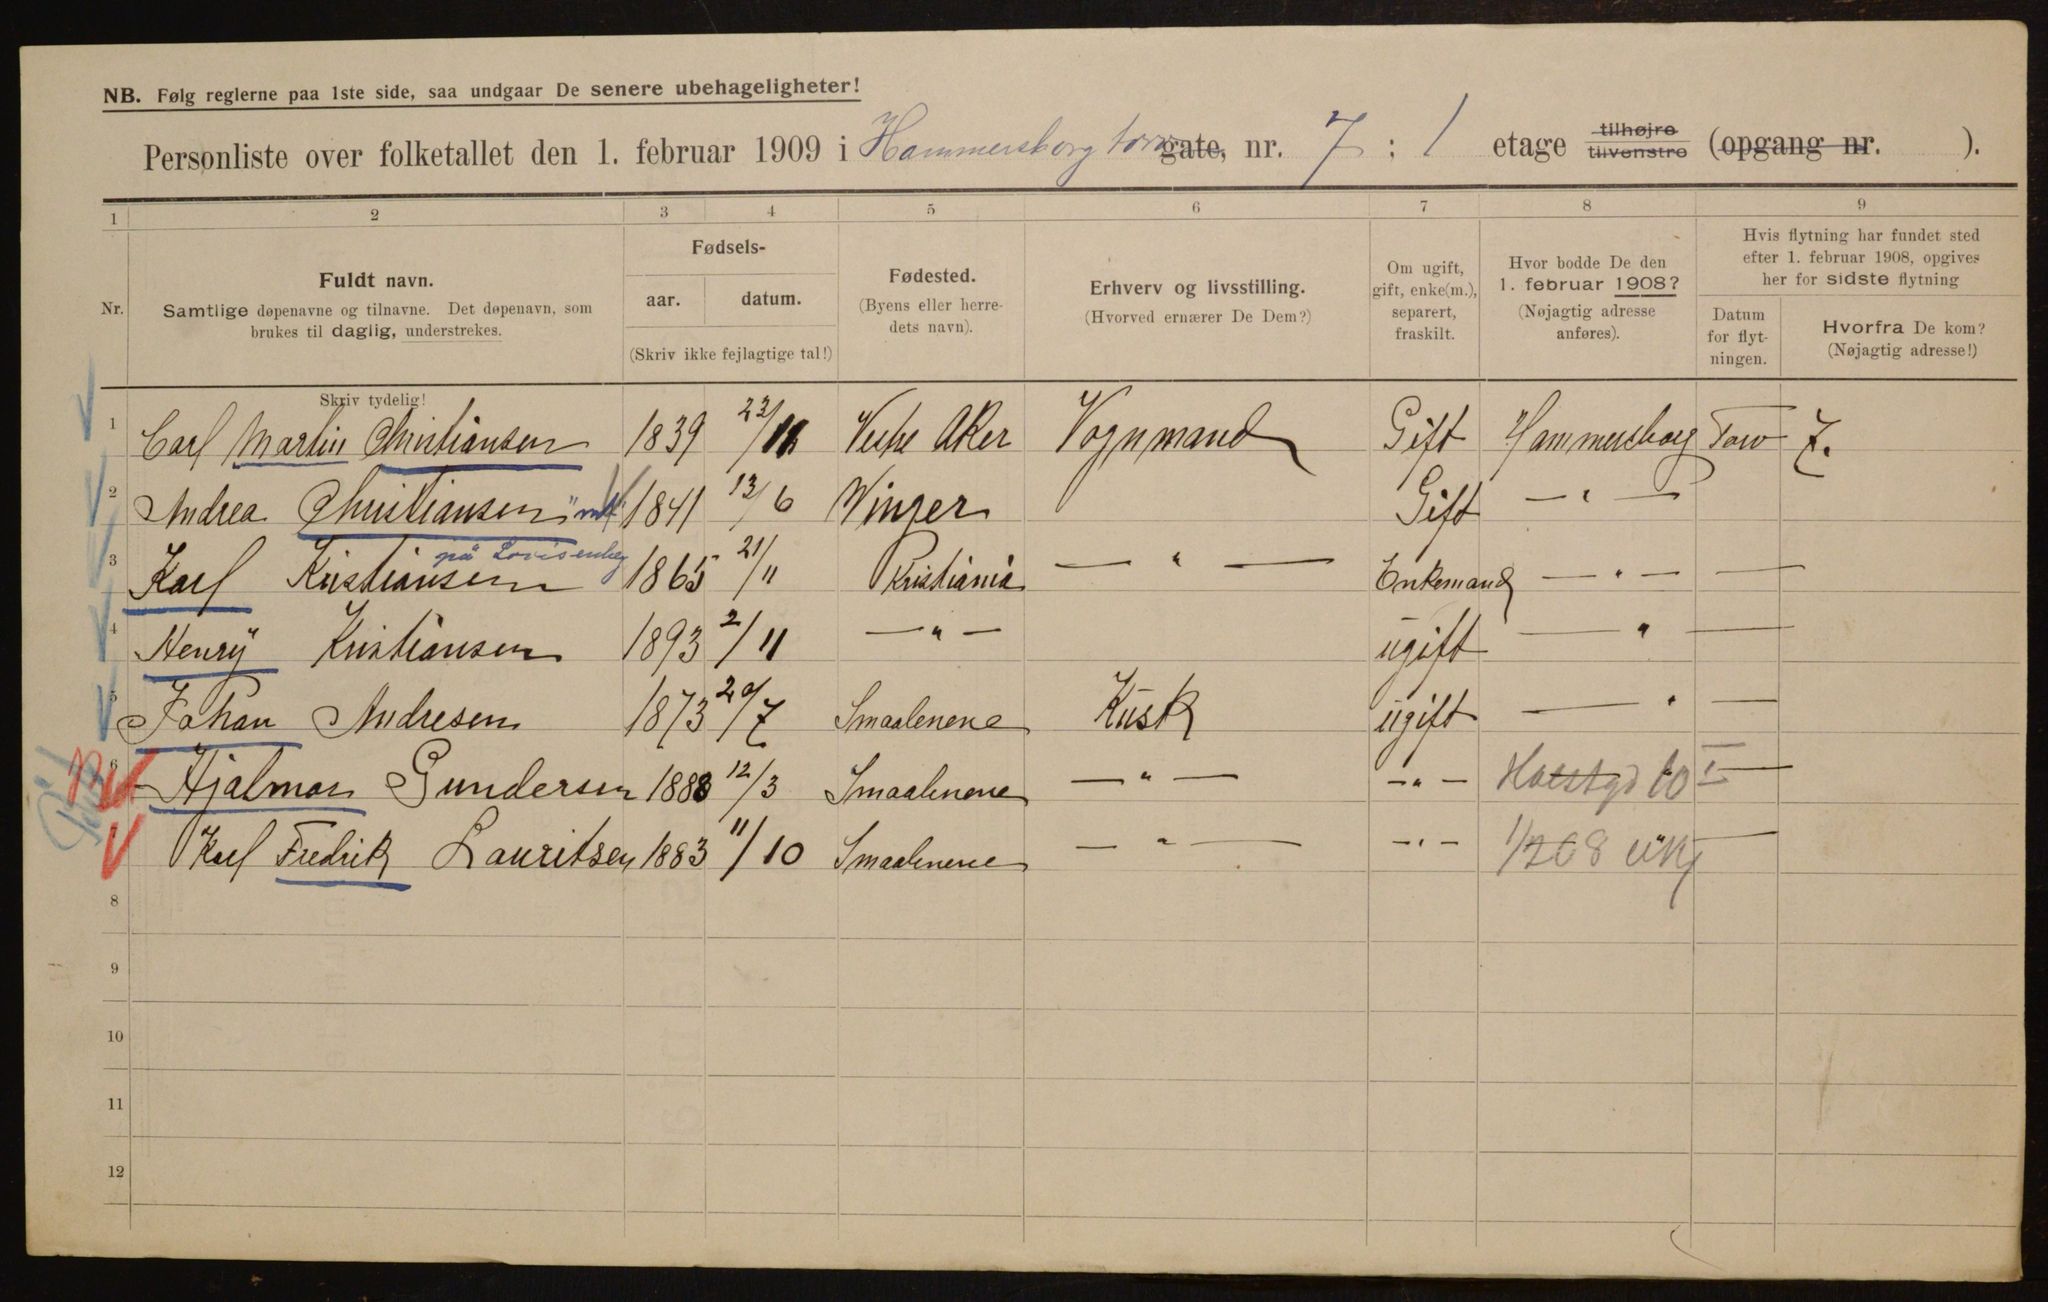 NB. Følg reglerne paa 1ste side, saa undgaar De senere ubehageligheter!
Personliste over folketallet den 1. februar 1909 i Hammersborg torv gate, nr. 7 ; 1 etage tilhøjre tilvenstre (opgang nr. ).
1 2 3 4 5 6 7 8 9
Nr.
Fuldt navn.
Samtlige døpenavne og tilnavne. Det døpenavn, som
brukes til daglig, understrekes.
Fødsels-
aar. datum.
(Skriv ikke fejlagtige tal!)
Fødested.
(Byens eller herre-
dets navn).
Erhverv og livsstilling.
(Hvorved ernærer De Dem?)
Om ugift,
gift, enke(m.),
separert,
fraskilt.
Hvor bodde De den
1. februar 1908?
(Nøjagtig adresse
anføres).
Hvis flytning har fundet sted
efter 1. februar 1908, opgives
her for sidste flytning
Datum
for flyt-
ningen.
Hvorfra De kom?
(Nøjagtig adresse!)
Skriv tydelig!
1 Carl Martin Christiansen 1839 23/11 Vestre AKer Vognmand Gift Hammersborg Torv 7.
2 Andrea Christiansen 1841 13/6 Winger Gift — " —
på Lovisenberg
3 Karl Kristiansen 1865 21/11 Kristiania — " — Enkemand — " — —
4 Henry Kristiansen 1893 2/11 — " — ugift — " —
5 Johan Andresen 1873 20/7 Smaalenene Kusk ugift — " —
6 Hjalmar Gundersen 1888 12/3 Smaalenene — " — — " — Holstgd 10 I —
Karl Fredrik Lauritsen 1883 11/10 Smaalenene — " — — " — 1/2 08 —
8
9
10
11
12